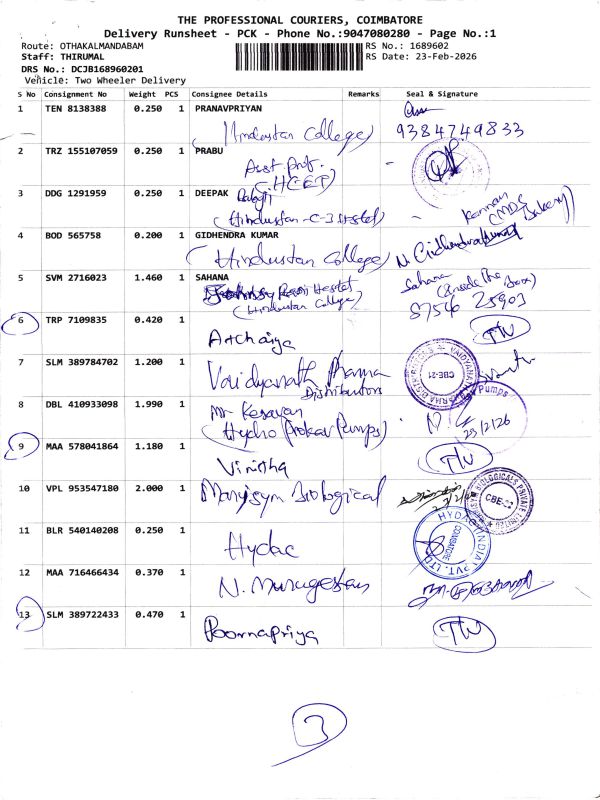 THE PROFESSIONAL COURIERS, COIMBATORE
Delivery Runsheet - PCK - Phone No.:9047080280 - Page No.:1
Route: OTHAKALMANDABAM
RS No.: 1689602
Staff: THIRUMAL
RS Date: 23-Feb-2026
DRS No.: DCJB168960201
Vehicle: Two Wheeler Delivery
S No Consignment No Weight PCS Consignee Details Remarks Seal & Signature
1 TEN 8138388 0.250 1 PRANAVPRIYAN
(Hindustan College) 9384749833
2 TRZ 155107059 0.250 1 PRABU
Asst. Prof.
(HCET)
3 DDG 1291959 0.250 1 DEEPAK
Balaji
(Hindustan - C-3 Hostel)
Kannan
(CMDS Bakery)
4 BOD 565758 0.200 1 GIDHENDRA KUMAR
(Hindustan College) N. Gidhendra Kumar
5 SVM 2716023 1.460 1 SAHANA
Hostel
(Hindustan College)
Sahana
(Inside The Box)
8754 25903
6 TRP 7109835 0.420 1
Atchaiya
7 SLM 389784702 1.200 1
Vaidyanath Pharma
Distributors
CBE-21
8 DBL 410933098 1.990 1
Mr Kesavan
(Hydro Prokav Pumps)
Pumps
23/2/26
9 MAA 578041864 1.180 1
Vinitha
10 VPL 953547180 2.000 1
Biological
BIOLOGICALS PRIVATE LIMITED
CBE-21
11 BLR 540140208 0.250 1
Hydac
HYDAC INDIA PVT. LTD
COIMBATORE
12 MAA 716466434 0.370 1
N. Murugesan
13 SLM 389722433 0.470 1
Poornapriya
3